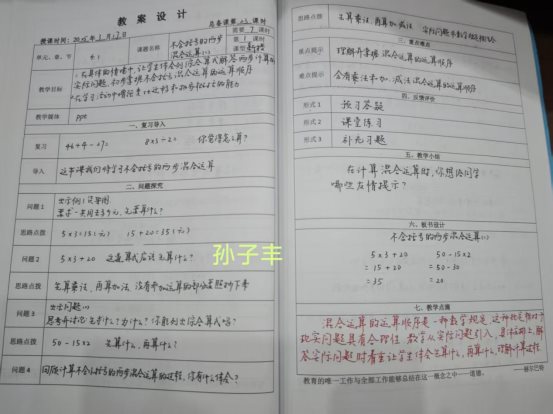 教 案 设 计
总备课第 课时
授课时间:
需要 课时
第 1 课时
单元、章、节
课题名称
不含括号的两步
混合运算(1)
课型 新授
教学目标
教学媒体
ppt
一、复习导入
复习
46+4-27=
8×5÷20=
你觉得怎么算?
导入
这节课我们将学习不含括号的两步混合运算
二、问题探究
问题1
出示例1 求一共用去多少元,先要算什么?
思路点拨
5×3=15(元)
15+20=35(元)
问题2
5×3+20
这道算式应该先算什么?
思路点拨
先算乘法,再算加法,没有参加运算的部分要照抄下来
问题3
出示问题(2)
思考并讨论 先求什么?为什么?你能列出综合算式吗?
思路点拨
50-15×2
先算什么,再算什么?
问题4
回顾计算不含括号的两步混合运算的过程,你有什么体会?
孙子丰
思路点拨
先算乘法,再算加减法
三、重点难点
重点提示
理解并掌握混合运算的运算顺序
难点提示
含有乘法和加、减法混合运算的运算顺序
四、反馈评价
形式1
预习答疑
形式2
课堂练习
形式3
补充习题
五、教学小结
在计算混合运算时,你想给同学
哪些友情提示?
六、板书设计
不含括号的两步混合运算(1)
5×3+20
50-15×2
=15+20
=50-30
=35
=20
七、教学点滴
混合运算的运算顺序是一种数学规定,这种规定相对于
现实问题具有合理性,教学从实际问题引入,
答实际问题时看重让学生体会先算什么,再算什么,理解计算过程
教育的唯一工作与全部工作能够总结在这一概念之中——道德。
——赫尔巴特